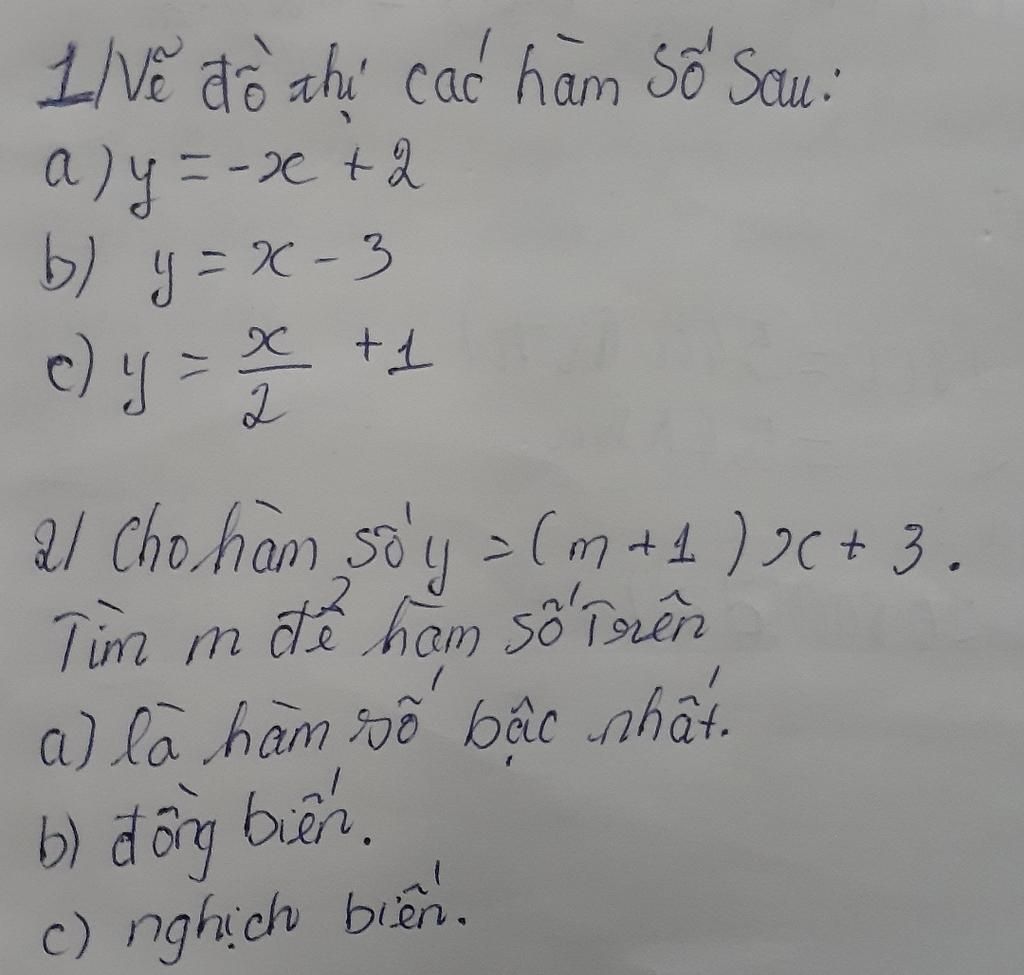 1/ Vẽ đồ thị các hàm số sau:
a) y = -x + 2
b) y = x - 3
c) y = x/2 + 1
2/ Cho hàm số y = (m + 1)x + 3.
Tìm m để hàm số trên
a) là hàm số bậc nhất.
b) đồng biến.
c) nghịch biến.